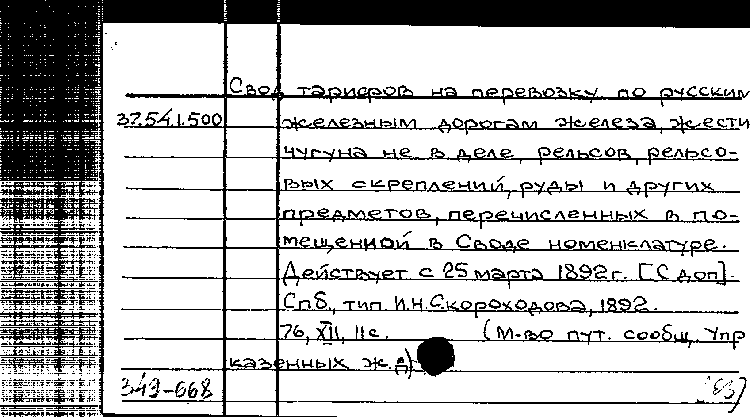 Свод тарифов на перевозку по русским
37.54.1.500 железным дорогам железа, жести
чугуна не в деле, рельсов, рельсо-
вых скреплений, руды и других
предметов, перечисленных в по-
мещенной в Своде номенклатуре.
Действует с 25 марта 1892 г. [С доп].
Спб., тип. И.Н.Скороходова, 1892.
76, XII, II с. (М-во пут. сообщ. Упр
казенных ж.д)
349-668